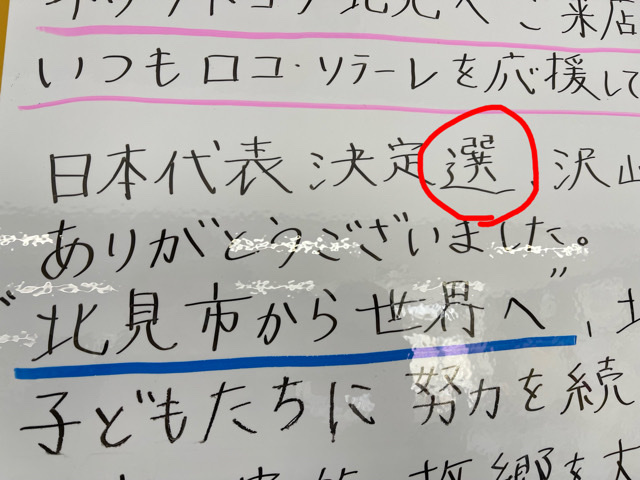 北見へ ご来店
いつもロコ・ソラーレを応援して
日本代表決定選、沢山
ありがとうございました。
"北見市から世界へ"、
子どもたちに 努力を続
故郷を